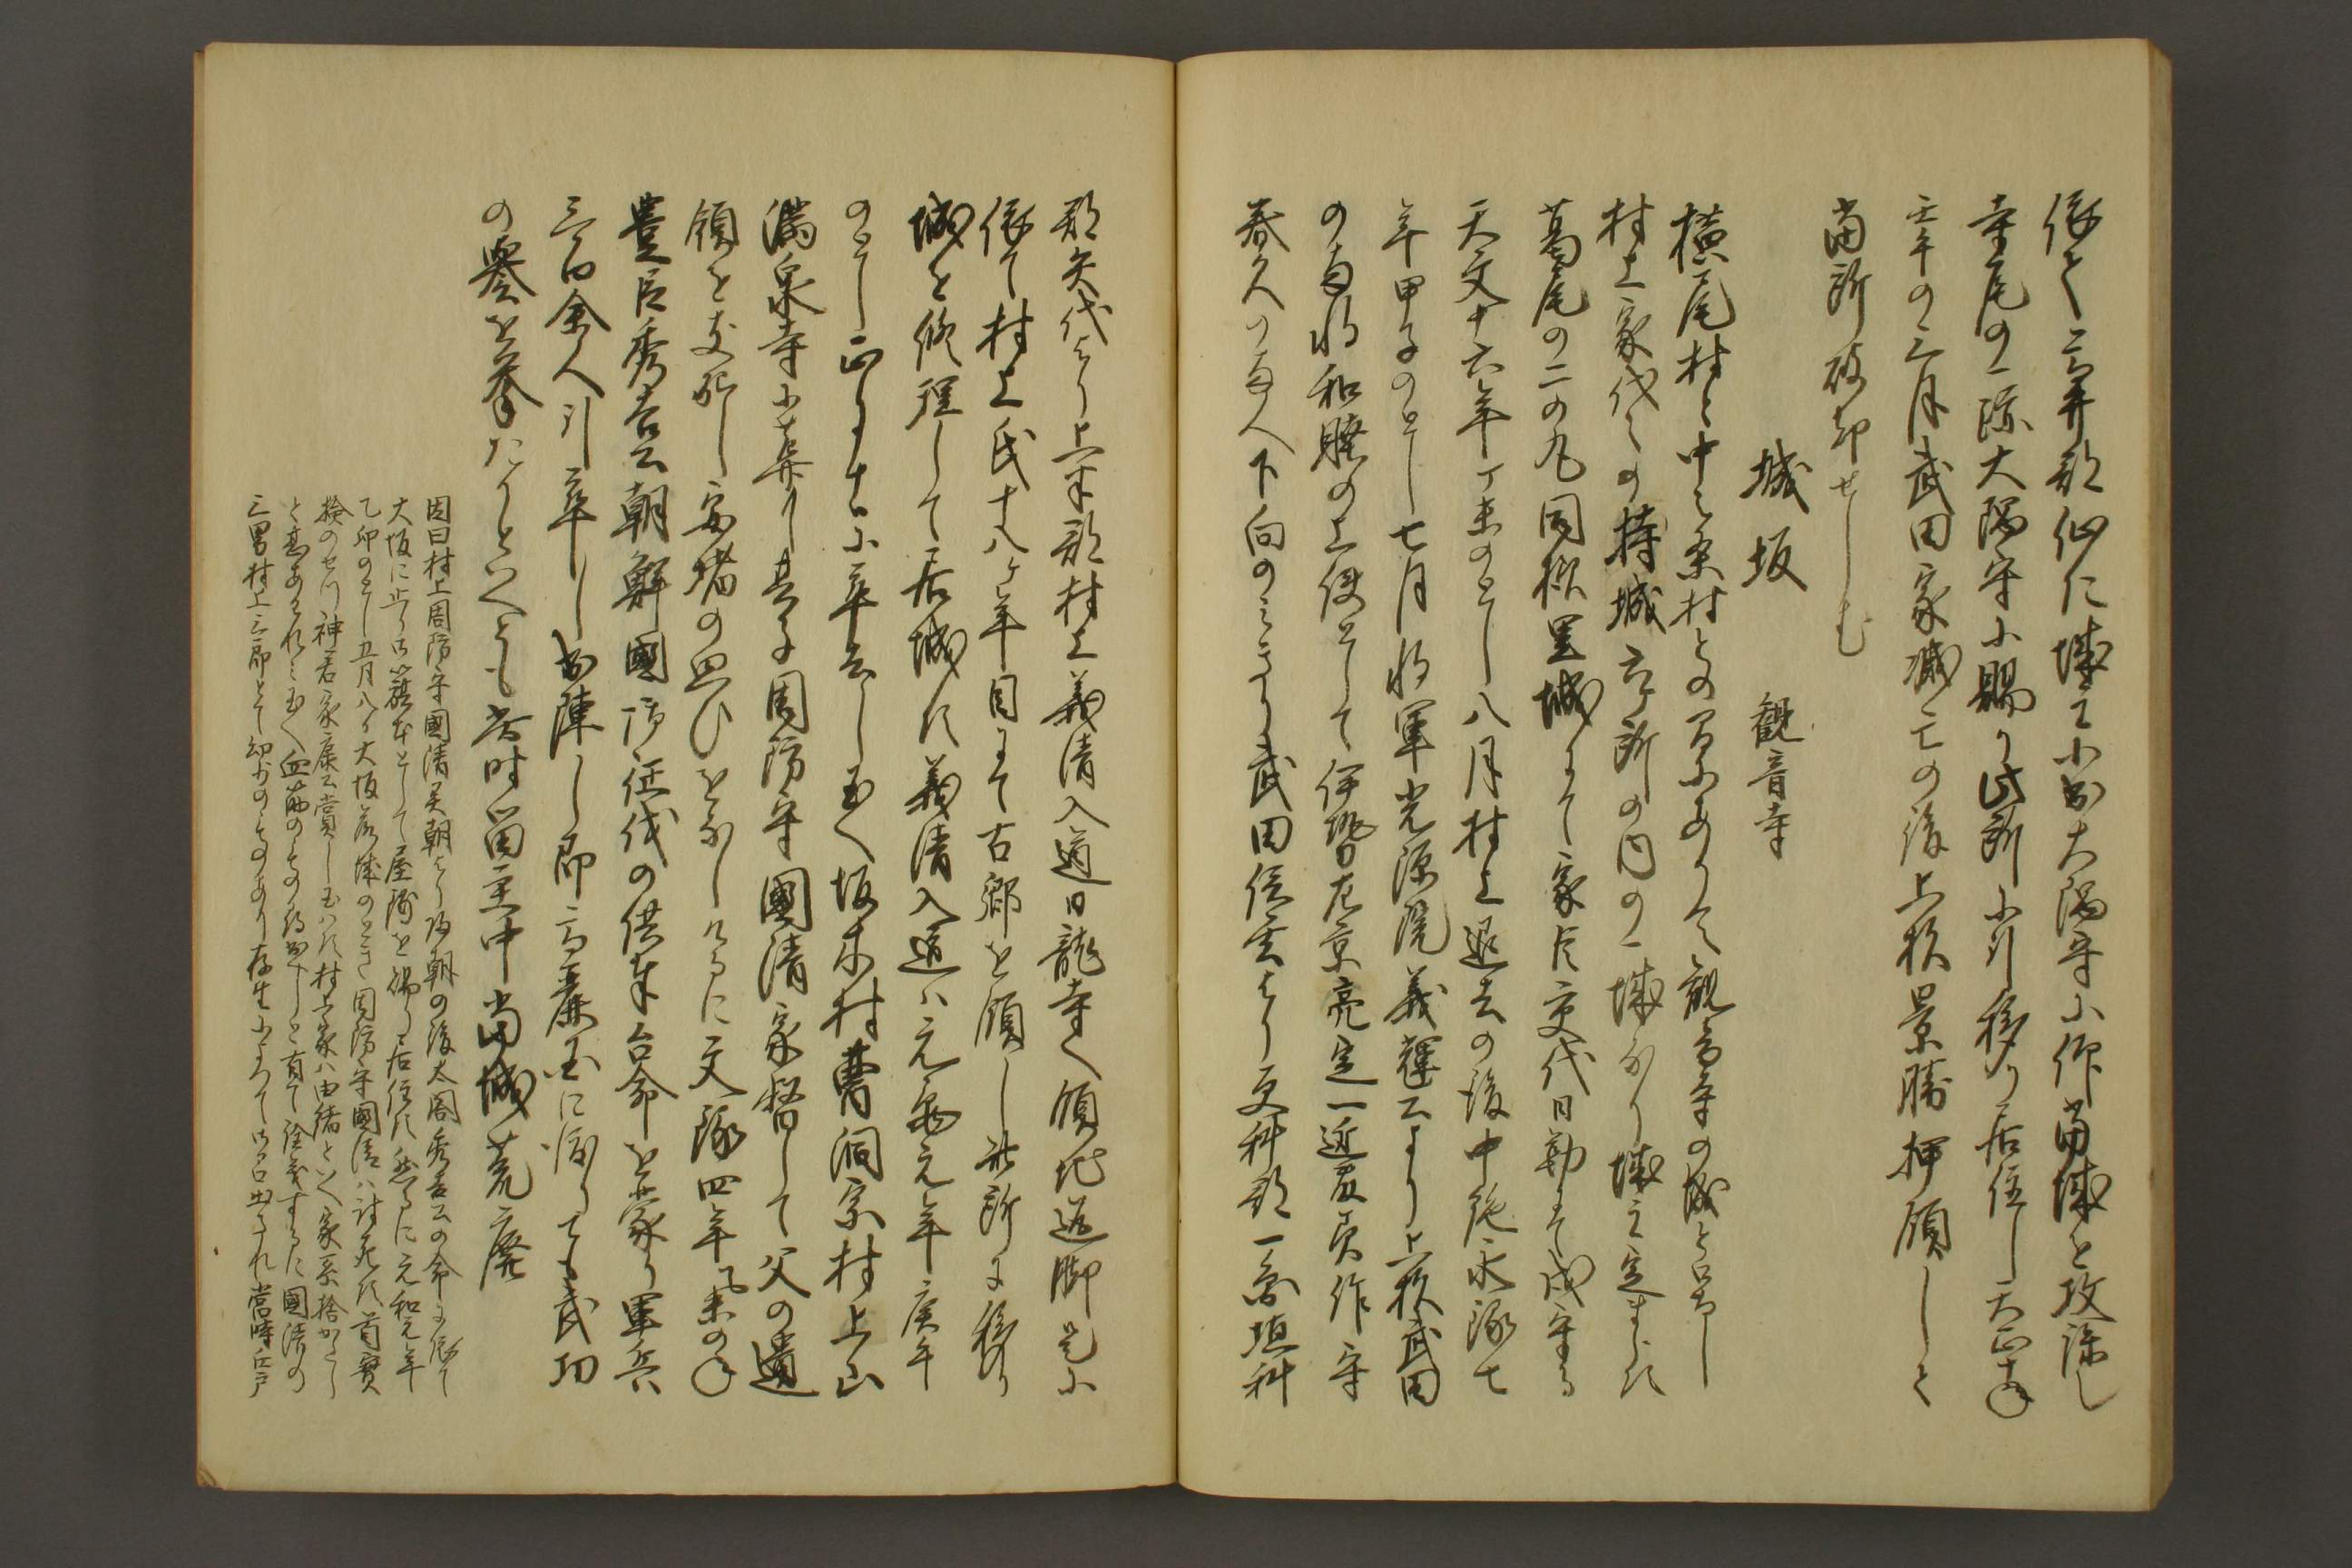 依て高井郡仙仁城主小出大隅守に仰當城を攻詠し
寺尾の一跡大隅守に賜り此所に引移り居住し天正十年
壬午の三月武田家滅亡の後上杉景勝押領して
當所破却せしむ
城坂 観音寺
横尾村と中之条村との間にありて観音寺の城と号し
村上家代々の持城六ケ所の内の一城なり城主定まらす
葛尾の二の丸同様里城にて家臣交代日勤にて戍守る
天文十六年丁未のとし八月村上退去の後中絶永禄七
年甲子のとし七月将軍光源院義輝公より上杉武田
の両将和睦の上使として伊勢左京亮定一近藤美作守
春久の両人下向のみきり武田信玄より更科郡一万垣科
郡矢代より上半郡村上義清入道日龍寺へ領地返附是に
依て村上氏十八ケ年目にて古郷を領し此所に移り
城を修理して居城す義清入道ハ元亀元年庚午
のとし正月十一日に卒去し玉へ坂木村曹洞宗村上山
満泉寺に葬り其子周防守國清家督して父の遺
領を支配し安堵の思ひをなしけるに文禄四年乙未の年
豊臣秀吉公朝鮮國御征伐の供奉台命を蒙り軍兵
三百余人引率し出陣し即高麗国に渡りても武功
の譽を挙たりといへとも者時留主中當城荒廃
因曰村上周防守國清異朝より帰朝の後太閤秀吉公の命に依て
大坂に止り御籏本として屋鋪を賜り居住す然るに元和元年
乙卯のとし五月八日大坂落城のとき周防守國清ハ討死す首實
検のせつ神君家康公賞し玉ハす村上家ハ由緒といへ家系捨かたし
と甚あはれミ玉へ血筋のもの行出すへしと有て詮議するに國清の
三男村上三郎とて幼少のものあり存生によつて御召出され當時江戸